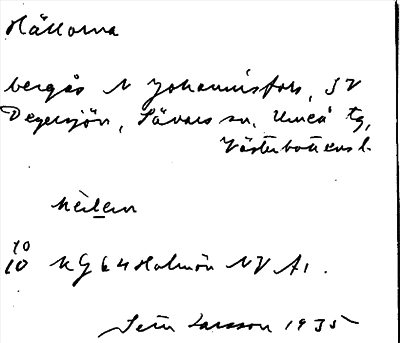 Hällorna
bergås N Johannisfors, SV
Degersjön, Sävars sn. Umeå tg,
Västerbottens l.
10
10 KG 64 Holmön NV A1.
Set Larsson 1935